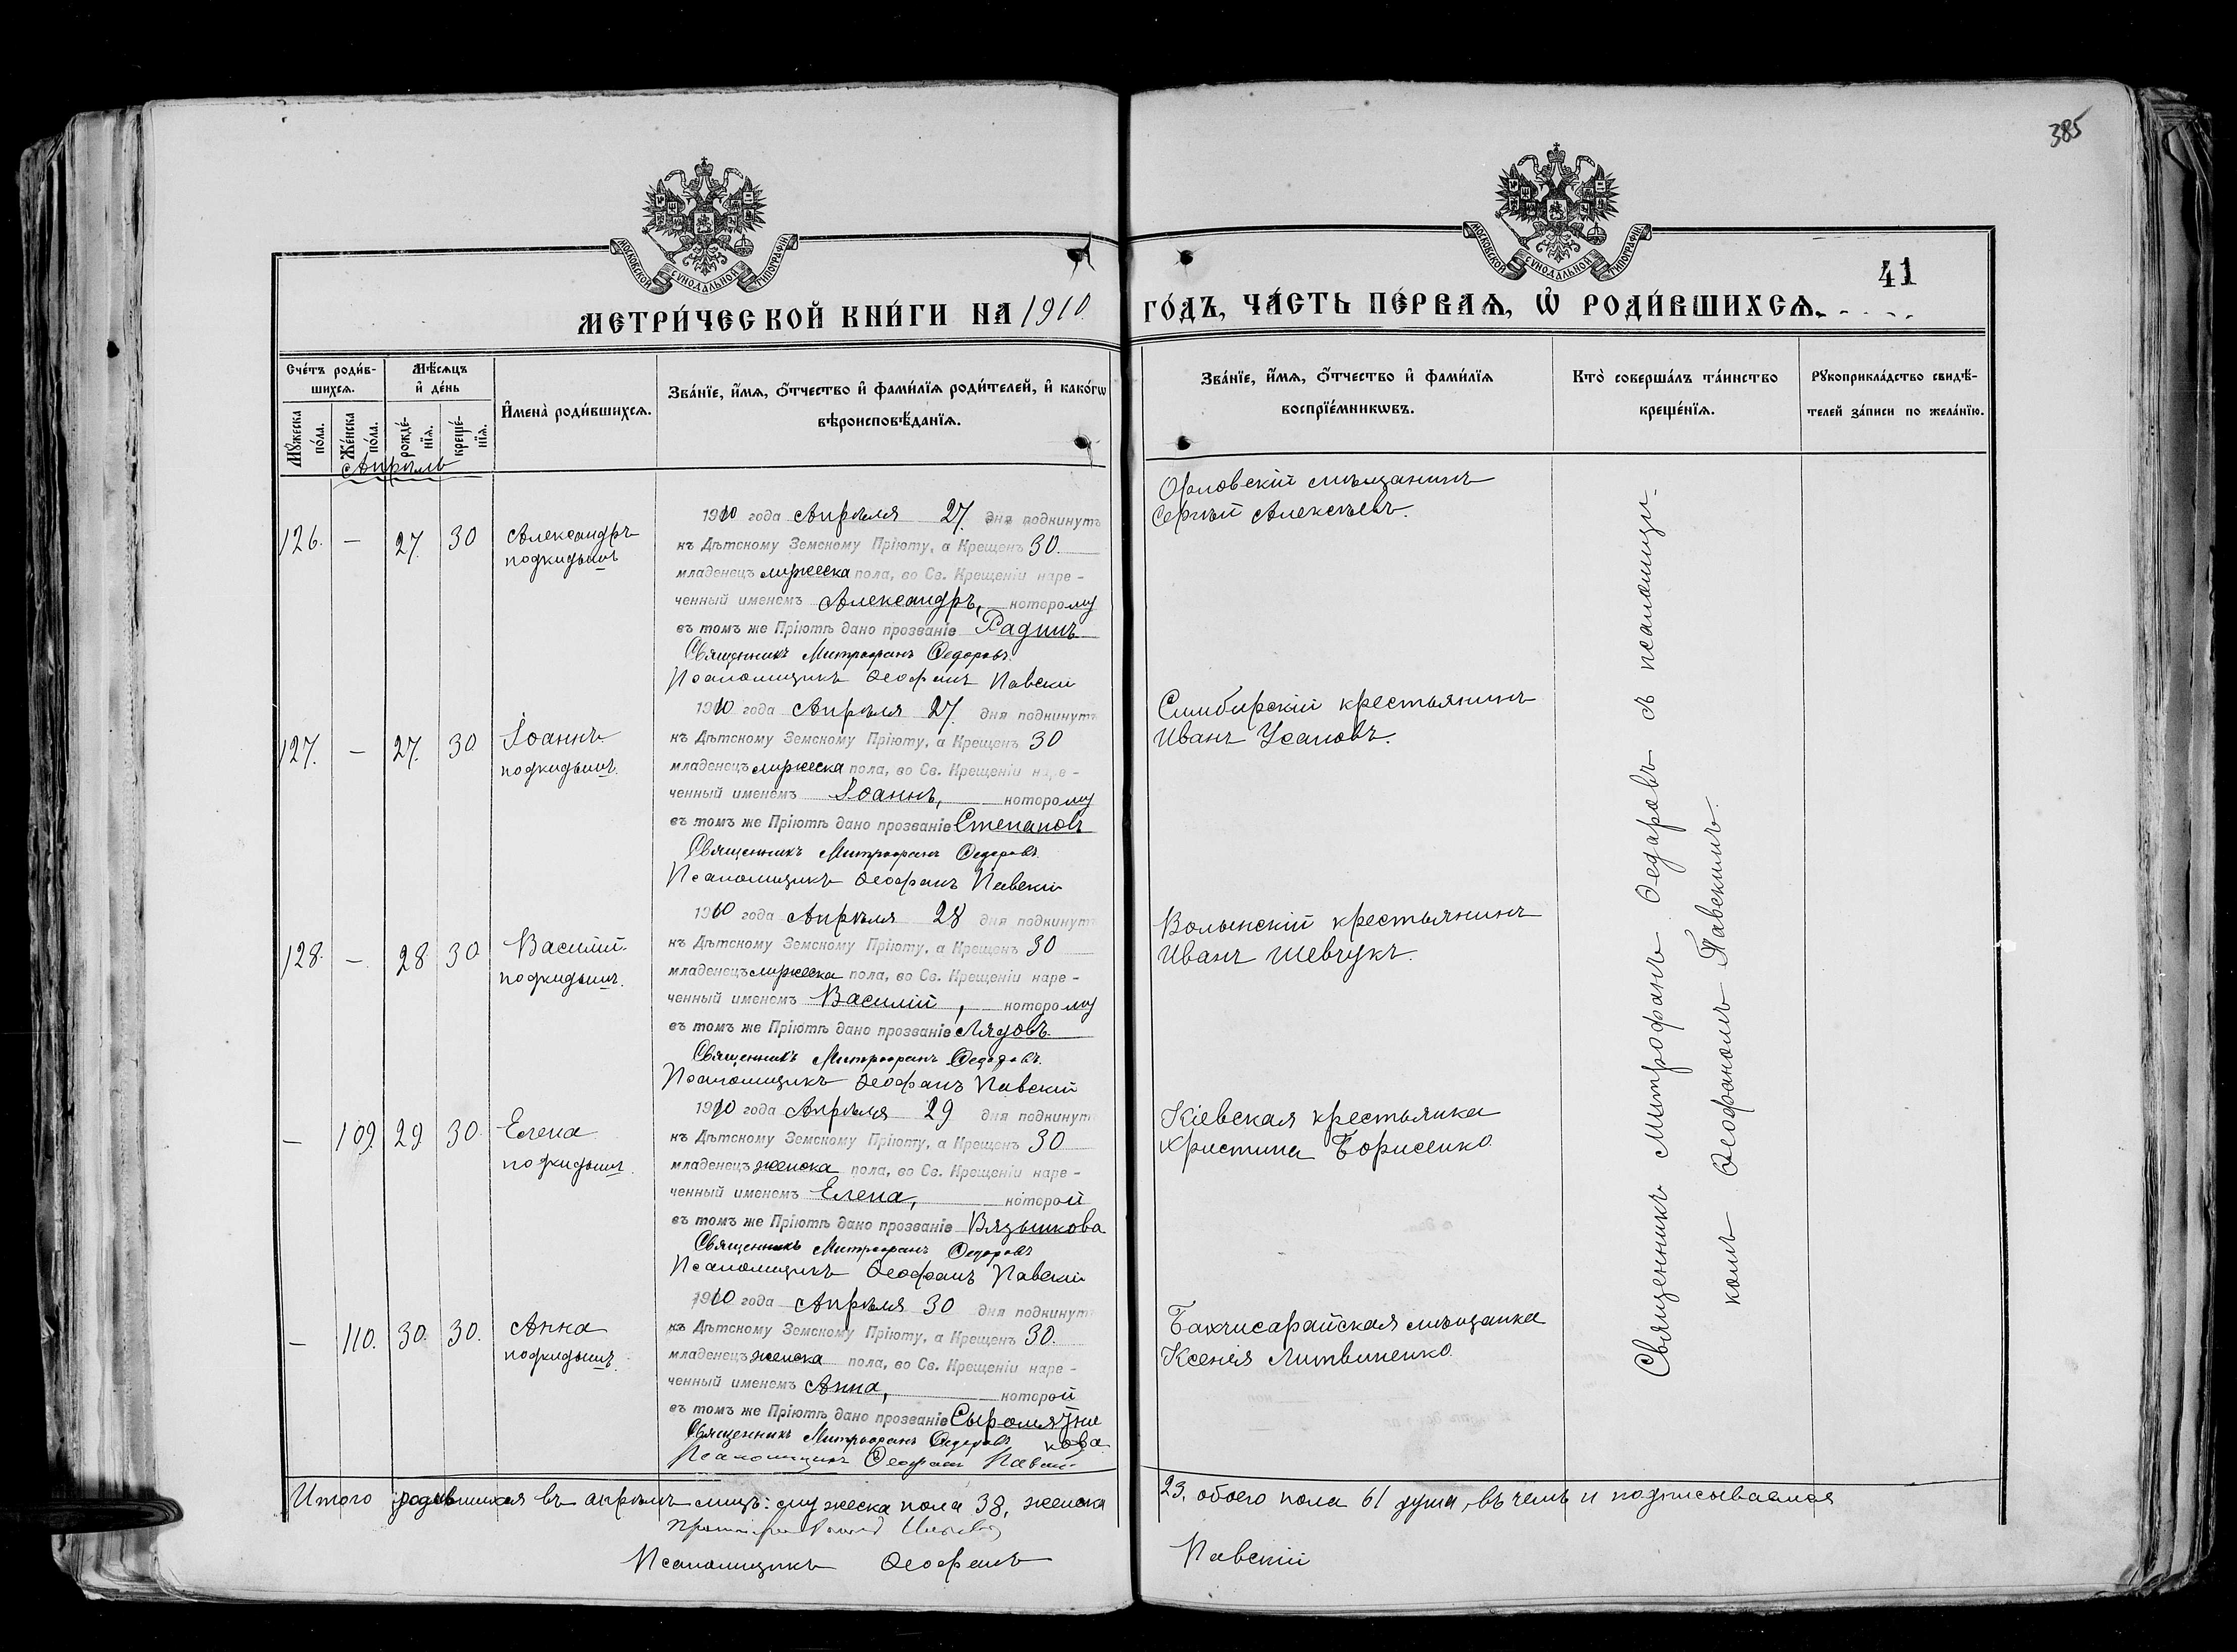 385
МОСКОВСКОЙ СУНОДАЛЬНОЙ ТИПОГРАФІИ
МОСКОВСКОЙ СУНОДАЛЬНОЙ ТИПОГРАФІИ
41
МЕТРИ́ЧЕСКОЙ КНИ́ГИ НА 1910
ГО́ДЪ, ЧА́СТЬ ПЕ́РВАѦ, Ѡ҆ РОДИ́ВШИХСѦ.
Сче́тъ роди́в-
шихсѧ.
Мѣ́сѧцъ
и҆ де́нь
И҆мена̀ роди́вшихсѧ.
Зва́нїе, и҆́мѧ, ѻ҆́тчество и҆ фами́лїѧ роди́телей, и҆ како́гѡ
вѣроисповѣ́данїѧ.
Мꙋ́жеска
по́ла.
Же́нска
по́ла.
рожде́-
нїѧ.
креще́-
нїѧ.
Зва́нїе, и҆́мѧ, ѻ҆́тчество и҆ фами́лїѧ
воспрїе́мникѡвъ.
Кто̀ соверша́лъ та́инство
креще́нїѧ.
Рꙋкоприкла́дство свидѣ́-
телей за́писи по жела́нїю.
Апрѣль
126. — 27. 30 Александръ
подкидышъ
1910 года Апрѣля 27. дня подкинутъ
къ Дѣтскому Земскому Пріюту, а Крещенъ 30.
младенецъ мужеска пола, во Св. Крещеніи наре-
ченный именемъ Александръ, которому
въ томъ же Пріютѣ дано прозваніе Радинъ
Священникъ Митрофанъ Ѳедоровъ.
Псаломщикъ Ѳеофанъ Павскій
Орловскій мѣщанинъ
Сергѣй Алексѣевъ.
127. — 27. 30 Іоаннъ
подкидышъ.
1910 года Апрѣля 27. дня подкинутъ
къ Дѣтскому Земскому Пріюту, а Крещенъ 30
младенецъ мужеска пола, во Св. Крещеніи наре-
ченный именемъ Іоаннъ, которому
въ томъ же Пріютѣ дано прозваніе Степановъ
Священникъ Митрофанъ Ѳедоровъ.
Псаломщикъ Ѳеофанъ Павскій
Симбирскій крестьянинъ
Иванъ Усановъ.
128. — 28 30 Василій.
подкидышъ.
1910 года Апрѣля 28 дня подкинутъ
къ Дѣтскому Земскому Пріюту, а Крещенъ 30
младенецъ мужеска пола, во Св. Крещеніи наре-
ченный именемъ Василій, которому
въ томъ же Пріютѣ дано прозваніе Лядовъ.
Священникъ Митрофанъ Ѳедоровъ.
Псаломщикъ Ѳеофанъ Павскій
Волынскій крестьянинъ
Иванъ Шевчукъ.
— 109. 29 30. Елена
подкидышъ.
1910 года Апрѣля 29 дня подкинутъ
къ Дѣтскому Земскому Пріюту, а Крещенъ 30
младенецъ женска пола, во Св. Крещеніи наре-
ченный именемъ Елена, которой
въ томъ же Пріютѣ дано прозваніе Вязьмикова
Священникъ Митрофанъ Ѳедоровъ
Псаломщикъ Ѳеофанъ Павскій
Кіевская крестьянка
Христина Борисенко.
— 110. 30. 30. Анна
подкидышъ.
1910 года Апрѣля 30 дня подкинутъ
къ Дѣтскому Земскому Пріюту, а Крещенъ 30.
младенецъ женска пола, во Св. Крещеніи наре-
ченный именемъ Анна, которой
въ томъ же Пріютѣ дано прозваніе Сыромятни
кова
Священникъ Митрофанъ Ѳедоровъ
Псаломщикъ Ѳеофанъ Павскій
Бахчисарайская мѣщанка
Ксенія Литвиненко.
Священникъ Митрофанъ Ѳедоровъ съ псаломщи-
комъ Ѳеофаномъ Павскимъ.
Итого родившихся въ апрѣлѣ мцѣ: мужеска пола 38, женска
23, обоего пола 61 душа, въ чемъ и подписываемся
Псаломщикъ Ѳеофанъ
Павскій